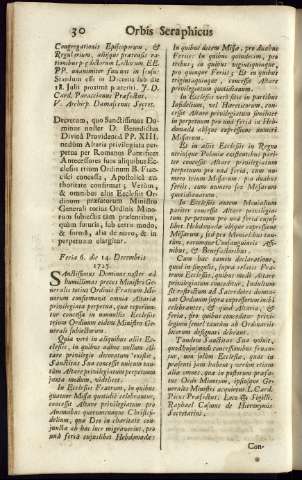 30 Orbis Seraphicus
Congregationis Episcoporum, &
Regularium, aliisque praeviis ra-
tionibus per dictorum Lectorum EE.
PP. unanimiter factum in scrip.
Standum esse in Decretis sub die
18. Julii proximè praeteriti. J. D.
Card. Paracciani Praefectus.
V. Archiep. Damascenus Secret.
Decretum, quo Sanctissimus Do-
minus noster D. Benedictus
Divinâ Providentiâ PP. XIII.
nedùm Altaria privilegiata per-
petua per Romanos Pontifices
Antecessores suos aliquibus Ec-
clesiis trium Ordinum B. Fran-
cisci concessa, Apostolicâ au-
thoritate confirmat; Verùm,
& omnibus aliis Ecclesiis Or-
dinum praefatorum Ministro
Generali totius Ordinis Mino-
rum subjectis tàm praesentibus,
quàm futuris, sub certo modo,
& formâ, alia de novo, & in
perpetuum elargitur.
Feria 6. die 14. Decembris
1725.
Sanctissimus Dominus noster ad
humillimas preces Ministri Ge-
neralis totius Ordinis Fratrum Mi-
norum confirmando omnia Altaria
privilegiata perpetua, quae reperiun-
tur concessa in nonnullis Ecclesiis
trium Ordinum eidem Ministro Gen-
erali subjectorum.
Quia verò in aliquibus aliis Ec-
clesiis, in quibus adhuc nullum Al-
tare privilegio decoratum existit,
Sanctitas Sua concessit unicum tan-
tùm Altare privilegiatum perpetuum
juxta modum, videlicet.
In Ecclesiis Fratrum, in quibus
quatuor Missae quotidiè celebrantur,
concessit Altare privilegiatum pro
Animabus quorumcunque Christifi-
delium, quae Deo in charitate con-
junctae ab hac luce migraverint, pro
unâ feriâ cujuslibet Hebdomadae:
In quibus decem Missae, pro duabus
Feriis: In quibus quindecim, pro
tribus; in quibus viginti quinque,
pro quinque Feriis; Et in quibus
triginta quinque, concessit Altare
privilegiatum quotidianum.
In Ecclesiis verò sitis in partibus
Infidelium, vel Haereticorum, con-
cessit Altare privilegiatum similiter
in perpetuum pro unâ feriâ in Heb-
domada absque expressione numeri
Missarum.
Et in aliis Ecclesiis in Regno
utriusque Poloniae existentibus pari-
ter concessit Altare privilegiatum
in perpetuum pro unâ feriâ, cum nu-
mero trium Missarum: pro duabus
feriis, cum numero sex Missarum
quotidianarum.
In Ecclesiis autem Monialium
pariter concessit Altare privilegia-
tum perpetuum pro unâ feriâ cujus-
libet Hebdomadae absque expressione
Missarum, sed pro Monialibus tan-
tùm, earumque Consanguineis, Affi-
nibus, & Benefactoribus.
Cum hac tamen declaratione,
quòd in singulis, supra relatis Fra-
trum Ecclesiis, quibus modò Altare
privilegiatum conceditur, Indultum
suffragari debeat Sacerdotibus duntax-
at Ordinum supra expressorum inibi
celebrantibus, & quòd Altaria, &
feria, pro quibus conceditur privi-
legium semel tantùm ab Ordinariis
locorum designari debeant.
Tandem Sanctitas Sua voluit,
quod hujusmodi concessionibus fruan-
tur, non solùm Ecclesiae, quae in
praesenti jam habent, verùm etiam
aliae omnes, quae in posterum praefa-
tis Ordinibus, ipsique Ge-
nerali Ministro acquirent. L. Card.
Picus Praefectus. Loco ✠ Sigilli.
Raphael Cosmus de Hieronymis
Secretarius.
Con-